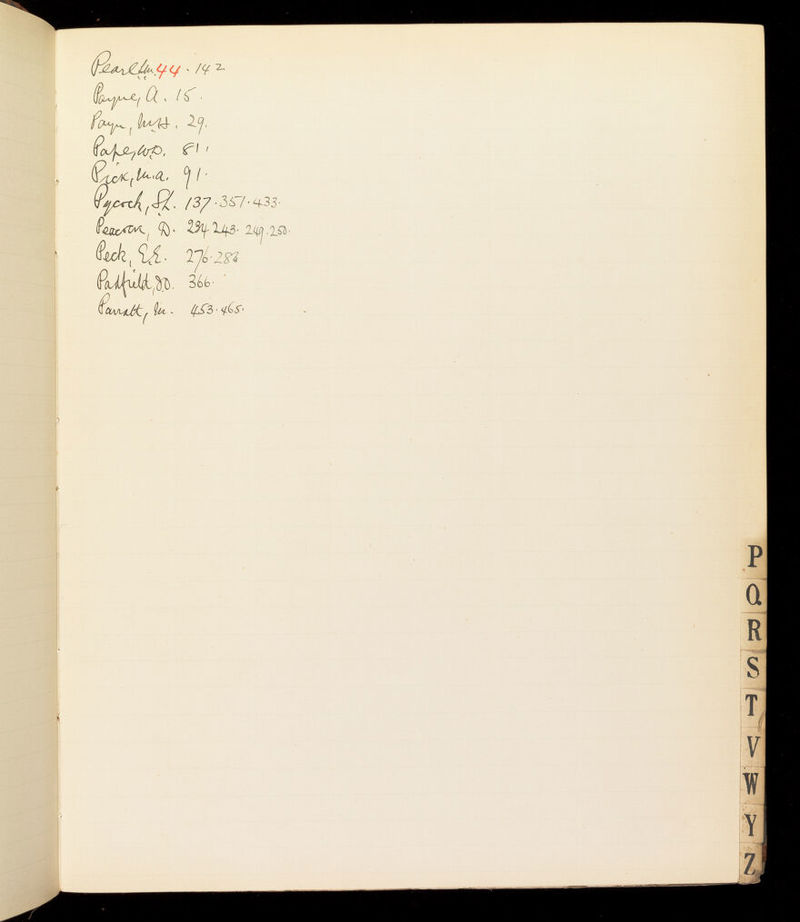 Pearl, M. 44. 142
Payne, A. 15.
Payn, M.H. 29.
Pape, W.D. 81.
Pick, M.A. 91.
Pycock, 137.351.433.
Pearson, D. 234.243.249.250.
Peck, E.E. 276.283
Padfield, 366.
Parratt, M. 453.465.
P
Q
R
S
T
V
W
Y
Z